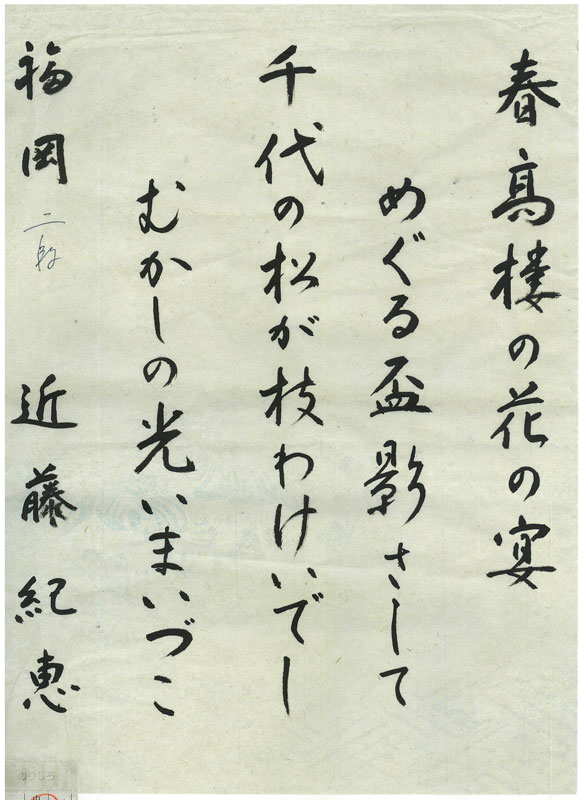 春高楼の花の宴
めぐる盃影さして
千代の松が枝わけいでし
むかしの光いまいづこ
福岡 二段 近藤紀恵